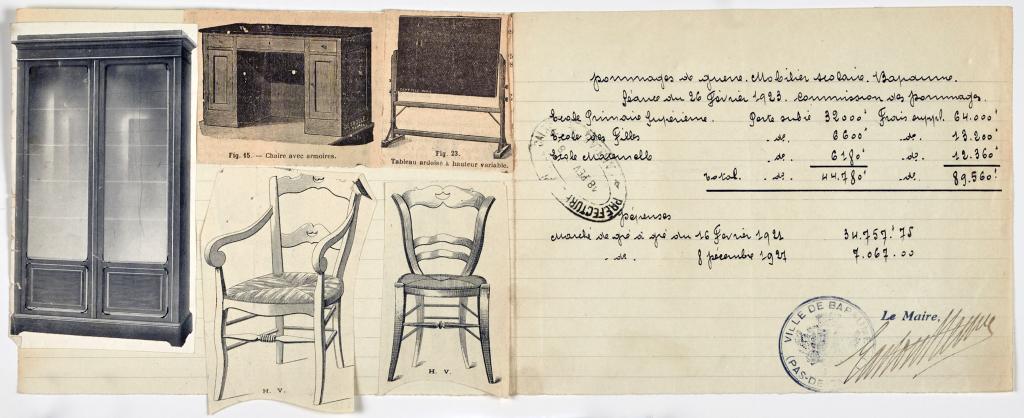 Fig. 15. — Chaire avec armoires.
Fig. 23.
Tableau ardoisé à hauteur variable.
H. V.
H. V.
Dommages de guerre. Mobilier scolaire. Bapaume.
Séance du 26 Février 1923. Commission des Dommages.
Ecole Primaire Supérieure. Perte subie 32000f Frais suppl. 64.000f
Ecole des Filles . do. 6600f . do. 13.200f
Ecole Maternelle . do. 6180f . do. 12.360f
Total. . do. 44.780f . do. 89.560f
Dépenses
Marché de gré à gré du 16 Février 1921 34.757f75
. do. 8 Décembre 1921 7.067.00
PREFECTURE
Le Maire,
VILLE DE BAPAUME
(PAS-DE-